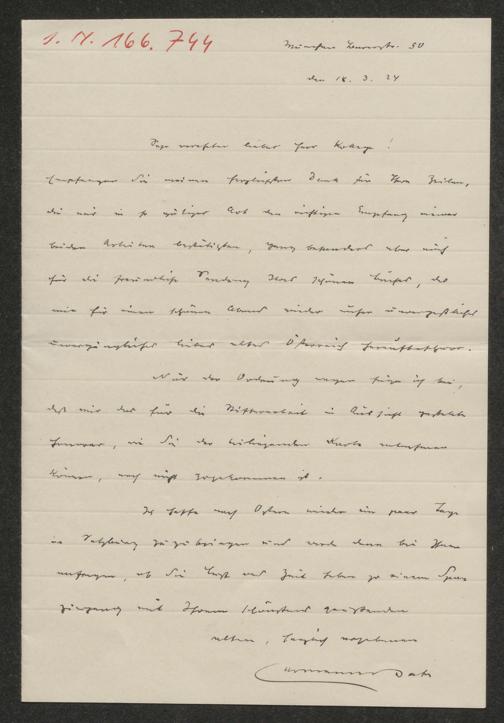 J. N. 166.744
München Leuerstr. 50
den 18. 3. 24
Sehr verehrter lieber Herr Kollege!
Empfangen Sie meinen herzlichsten Dank für Ihre Zeilen,
die mir in so gütiger Art den richtigen Empfang meiner
beiden Arbeiten bestätigten, ganz besonders aber auch
für die freundliche Sendung Ihres schönen Buches, das
mir für einen schönen Abend wieder unser unvergeßliches
unvergängliches liebes altes Österreich heraufbeschwor.
Nur der Ordnung wegen füge ich bei,
daß mir das für die Mitarbeit in Aussicht gestellte
Honorar, wie Sie der beiliegenden Karte entnehmen
können, noch nicht zugekommen ist.
Ich hoffe nach Ostern wieder ein paar Tage
in Salzburg zuzubringen und werde dann bei Ihnen
anfragen, ob Sie Lust und Zeit haben zu einem Spa-
ziergang mit Ihrem schönstens grüßenden
alten, herzlich ergebenen